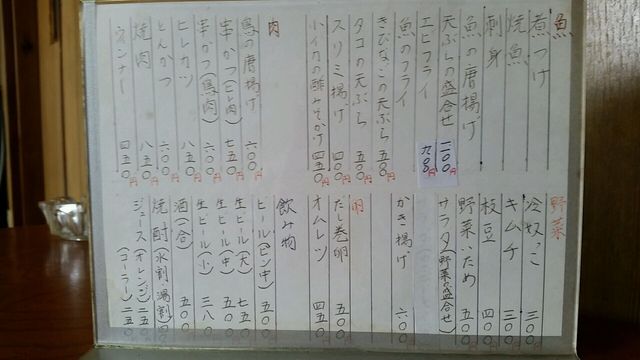 魚
煮つけ
焼魚
刺身
魚の唐揚げ
天ぷらの盛合せ 一一〇〇円
エビフライ 九〇〇円
魚のフライ
きびなごの天ぷら 五〇〇円
タコの天ぷら 五五〇円
スリミ揚げ 四〇〇円
小イカの酢みそかけ 四五〇円
肉
鳥の唐揚げ 六〇〇円
串かつ(ヒレ肉) 七五〇円
串かつ(鳥肉) 六〇〇円
ヒレカツ 八五〇円
とんかつ 六〇〇円
焼肉 八五〇円
ウインナー 四五〇円
野菜
冷奴っこ 三〇〇円
キムチ 三〇〇円
枝豆 四〇〇円
野菜いため 五〇〇円
サラダ(野菜の盛合せ)
かき揚げ 六〇〇円
卵
だし巻卵 五〇〇円
オムレツ 四五〇円
飲み物
ビール(ビン中) 五〇〇円
生ビール(大) 七五〇円
生ビール(中) 五〇〇円
生ビール(小) 三八〇円
酒(一合) 五〇〇円
焼酎(水割・湯割)
ジュース(オレンジ) 二五〇円
(コーラ) 二五〇円